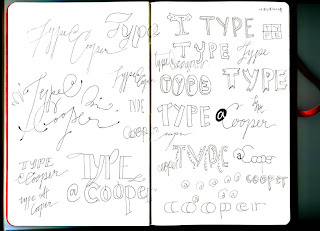 Type@
Cooper
Type
Type@
Cooper
Type@
Cooper
TYPE
COOPER
TYPE
@Cooper
type at
Cooper
TYPE
@COOPER
I TYPE
TYPE
Type
type@cooper
TYPE
TYPE
TYPE @ Cooper
TYPE
@Cooper
cooper
cooper